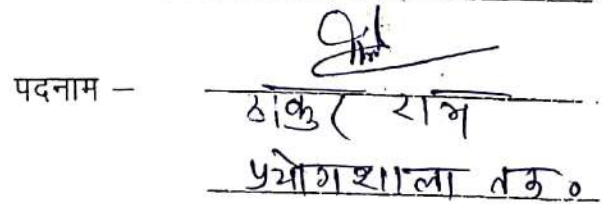 पदनाम – ठाकुर राम
प्रयोगशाला तक॰